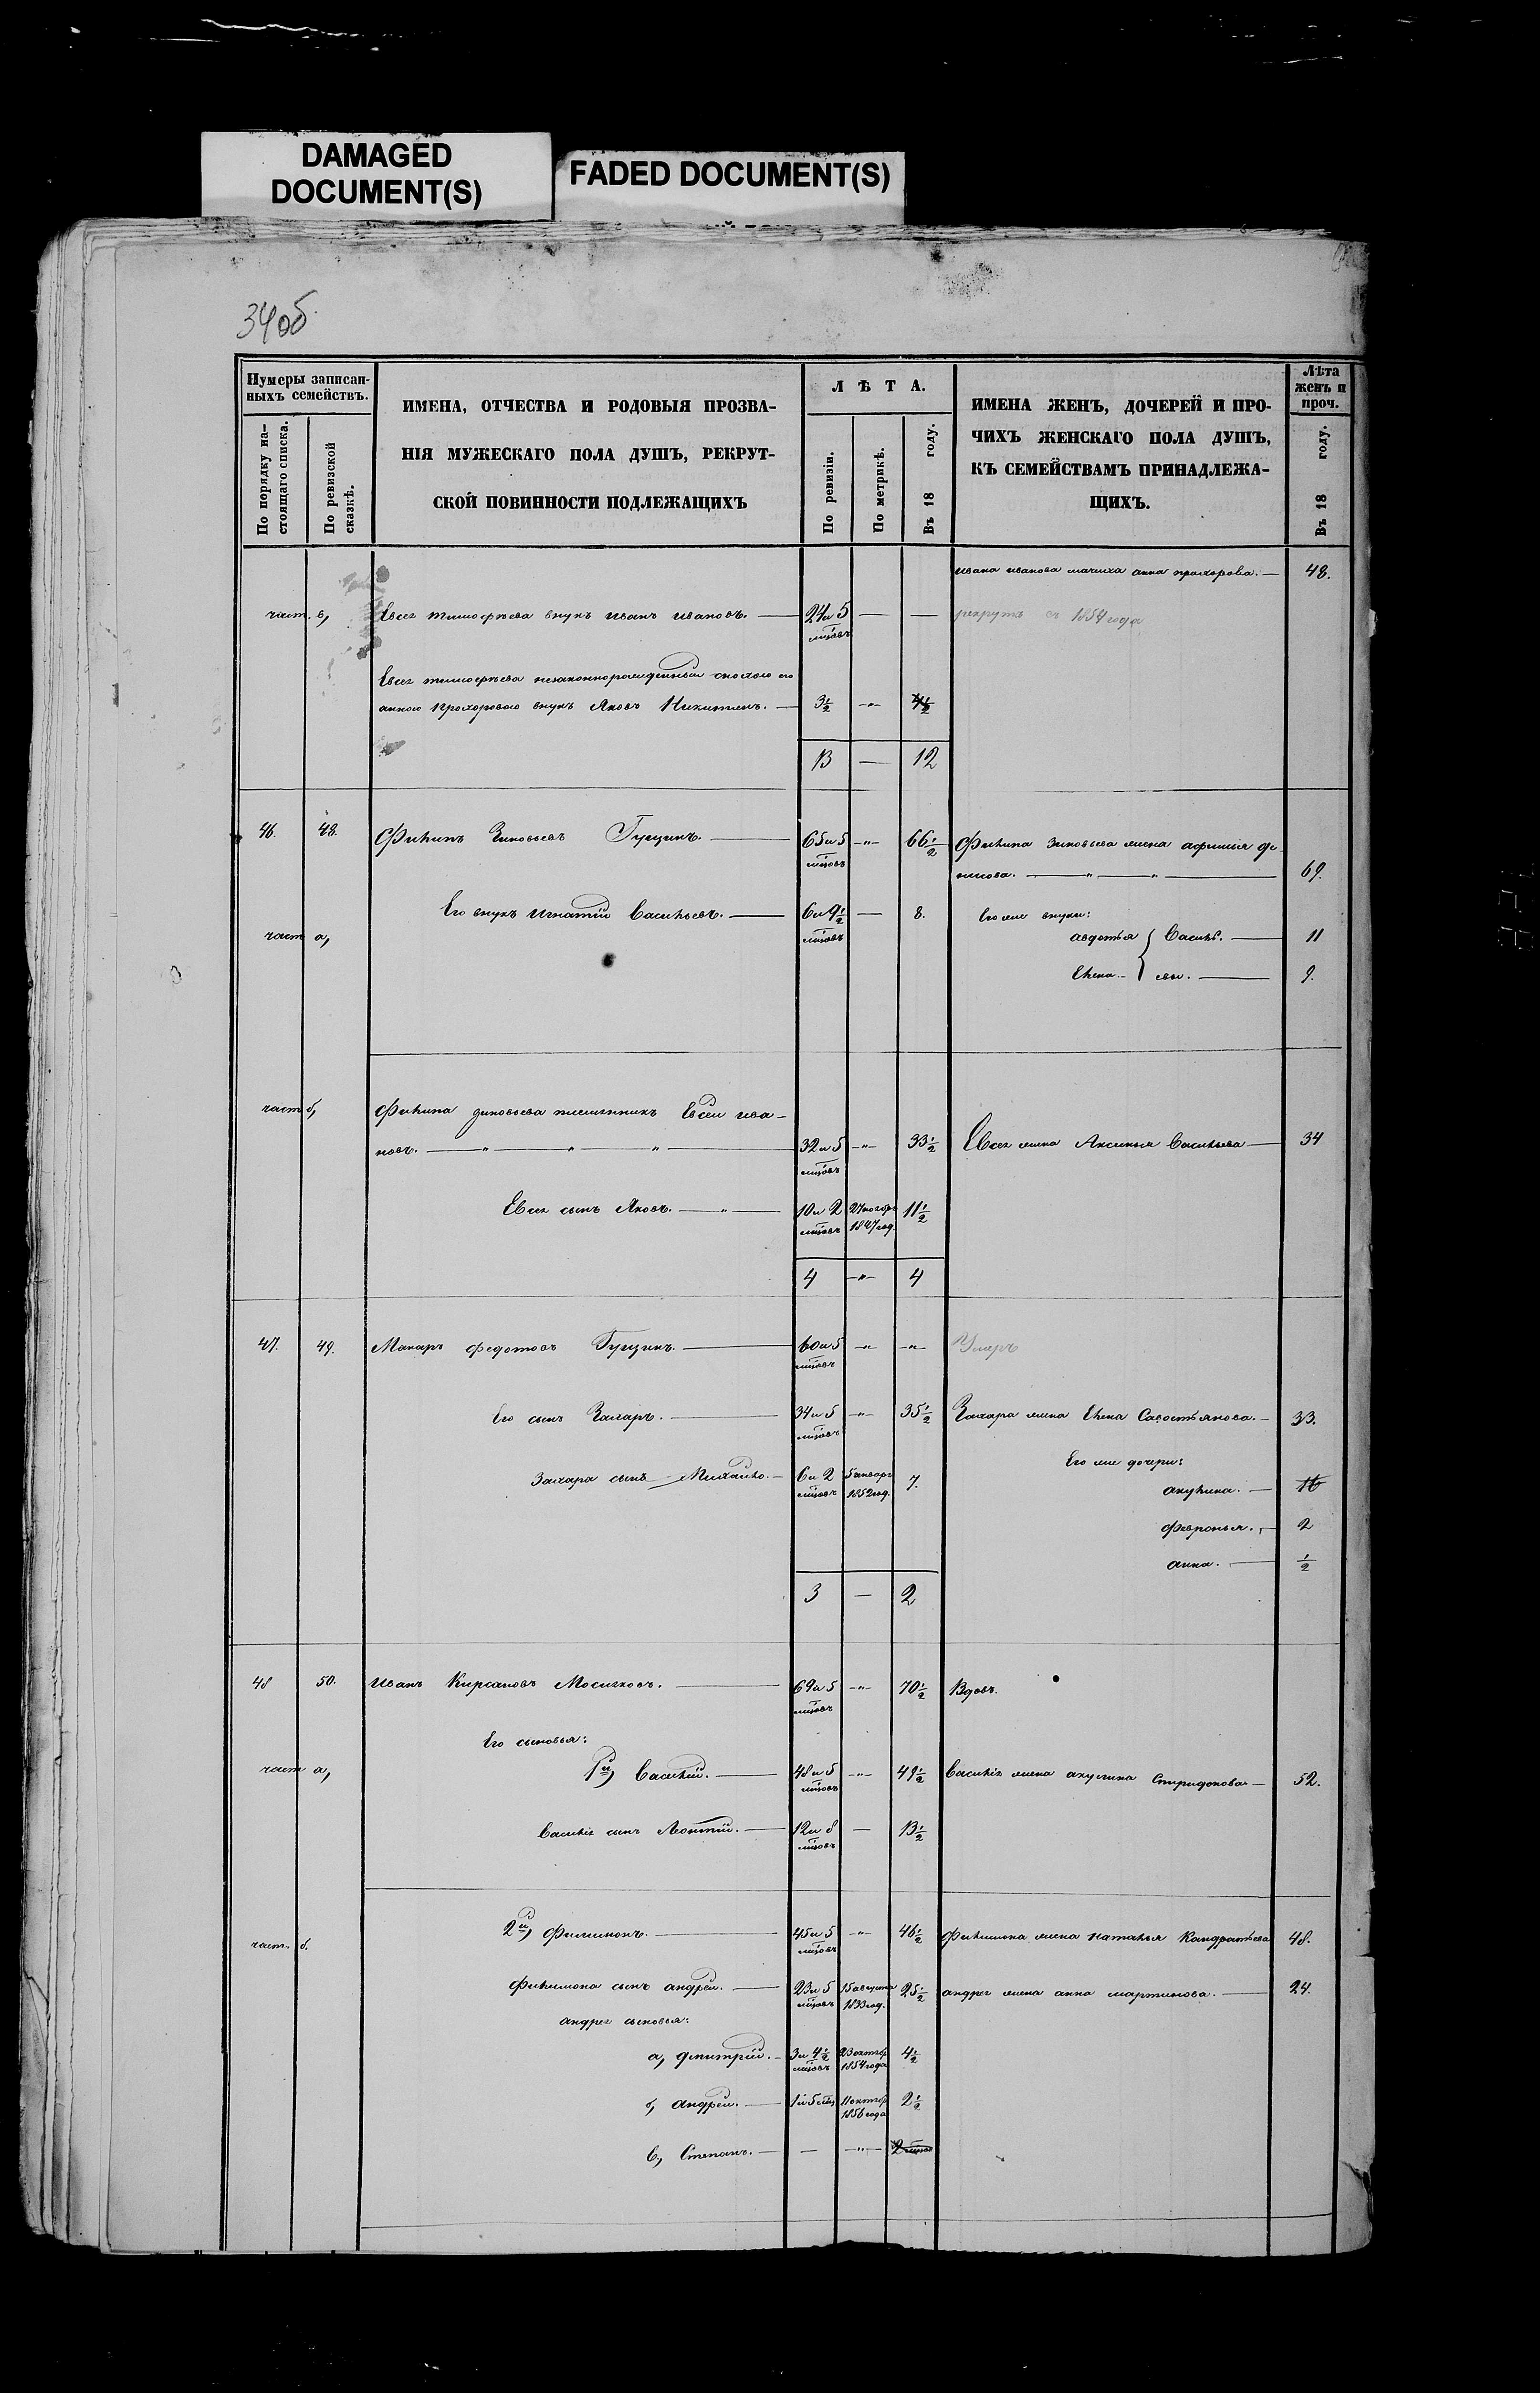 DAMAGED
DOCUMENT(S)
FADED DOCUMENT(S)
34об
Нумеры записан-
ныхъ семействъ.
По порядку на-
стоящаго списка.
По ревизской
сказкѣ.
ИМЕНА, ОТЧЕСТВА И РОДОВЫЯ ПРОЗВА-
НІЯ МУЖЕСКАГО ПОЛА ДУШЪ, РЕКРУТ-
СКОЙ ПОВИННОСТИ ПОДЛЕЖАЩИХЪ
ЛѢТА.
По ревизіи.
По метрикѣ.
Въ 18 году.
ИМЕНА ЖЕНЪ, ДОЧЕРЕЙ И ПРО-
ЧИХЪ ЖЕНСКАГО ПОЛА ДУШЪ,
КЪ СЕМЕЙСТВАМЪ ПРИНАДЛЕЖА-
ЩИХЪ.
Лѣта
женъ и
проч.
Въ 18 году.
ивана иванова мачиха анна прохорова. — 48.
част. в, Евсея тимофѣева внукъ иванъ ивановъ. — 24 и 5 мцовъ — — рекрутъ съ 1854 года
Евсея тимофѣева незаконнорожденный снохою его
анною Прохоровою внукъ Яковъ Никитинъ. — 3½ —„— 4½
13 — 12
46. 48. Филипъ Зиновьевъ Гущинъ. — 65 и 5 мцовъ —„— 66½ Филипа зиновьева жена афимья де-
нисова. —„—„— 69.
Его внукъ игнатій Васильевъ. — 6 и 9½ мцовъ — 8. Его же внуки:
част а, авдотья } Василь. — 11
Елена.- } евы. — 9.
част б, Филипа зиновьева племянникъ Евсей ива-
новъ. —„—„—„— 32 и 5 мцовъ —„— 33½ Евсея жена Аксинья Васильева — 34
Евсея сынъ Яковъ. —„— 10 и 2 мцовъ 27 ноябр 1847 год. 11½
4 —„— 4
47. 49. Макаръ федотовъ Гущинъ. — 60 и 5 мцовъ —„— —„— Умеръ
Его сынъ Захаръ. — 34 и 5 мцовъ —„— 35½ Захара жена Елена Савостьянова. — 33.
Его же дочери:
Захара сынъ Михайло. — 6 и 2 мцовъ 5 январ 1852 год. 7. акулина. — 16
февронья. — 2
анна. — ½
3 — 2
48 50. иванъ Кирсановъ Мосичковъ. — 69 и 5 мцовъ —„— 70½ Вдовъ.
Его сыновья:
част а, 1й, Василій. — 48 и 5 мцовъ —„— 49½ Василія жена акулина Спиридонова — 52.
Василія сынъ Леонтій. — 12 и 8 мцовъ — 13½
част. б. 2й, Филимонъ. — 45 и 5 мцовъ —„— 46½ Филимона жена наталья Кандратьева 48.
Филимона сынъ андрей. — 23 и 5 мцовъ 15 августа 1833 год. 25½ андрея жена анна мартинова. — 24.
андрея сыновья:
а, дмитрій. — 3 и 4½ мцовъ 23 октяб 1854 года 4½
б, андрей. — 1 и 5 мцъ 11 октяб 1856 года 2½
в, Степанъ. — — —„— 2 мцов